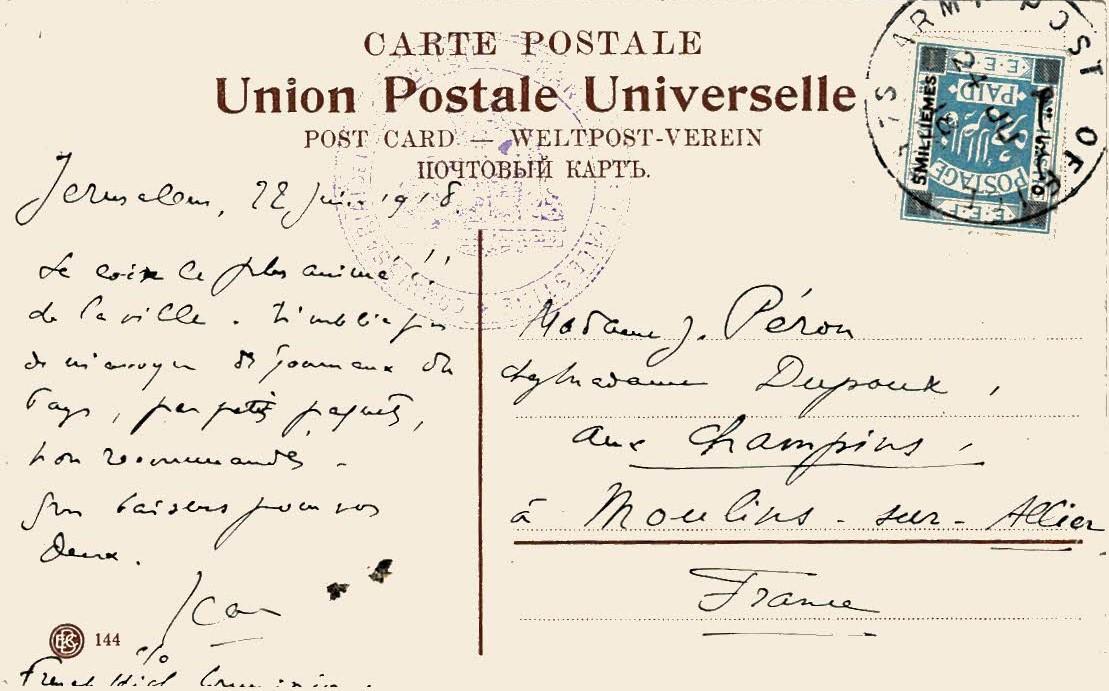 CARTE POSTALE
Union Postale Universelle
POST CARD — WELTPOST-VEREIN
ПОЧТОВЫЙ КАРТЪ.
ARMY POST OF
E.E.F.
PAID
POSTAGE
E.E.F.
5MILLIEMES
Jerusalem, 22 Juin 1918.
Le coin le plus animé !!
de la ville. N'oublie pas
de m'envoyer des journaux du
Pays, par petits paquets,
non recommandés.
Gros baisers pour vos
deux.
Jean
c/o
French High Commission
144
Madame J. Péron
chez madame Dupoux,
aux Champins,
à Moulins-sur-Allier
France